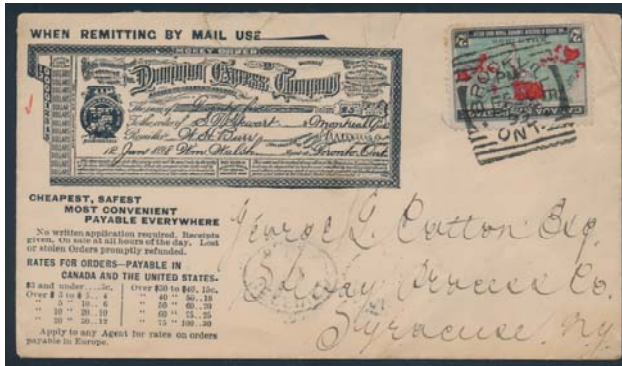 WHEN REMITTING BY MAIL USE
MONEY ORDER
Dominion Express Company
The sum of Twenty five
To the order of S. M. Stewart Montreal Que
Remitter W. H. Burr
12 June 1898 Toronto, Ont.
CHEAPEST, SAFEST
MOST CONVENIENT
PAYABLE EVERYWHERE
No written application required. Receipts
given. On sale at all hours of the day. Lost
or stolen Orders promptly refunded.
RATES FOR ORDERS—PAYABLE IN
CANADA AND THE UNITED STATES.
$3 and under ....3c. Over $30 to $40, 15c.
Over $ 3 to $ 5.. 4 " 40 " 50..18
" 5 " 10.. 6 " 50 " 60..20
" 10 " 20..10 " 60 " 75..25
" 20 " 30..12 " 75 " 100..30
Apply to any Agent for rates on orders
payable in Europe.
CANADA POSTAGE
BROCK
ONT.
George L. Cutton Esq.
Solvay Process Co.
Syracuse. Ny.